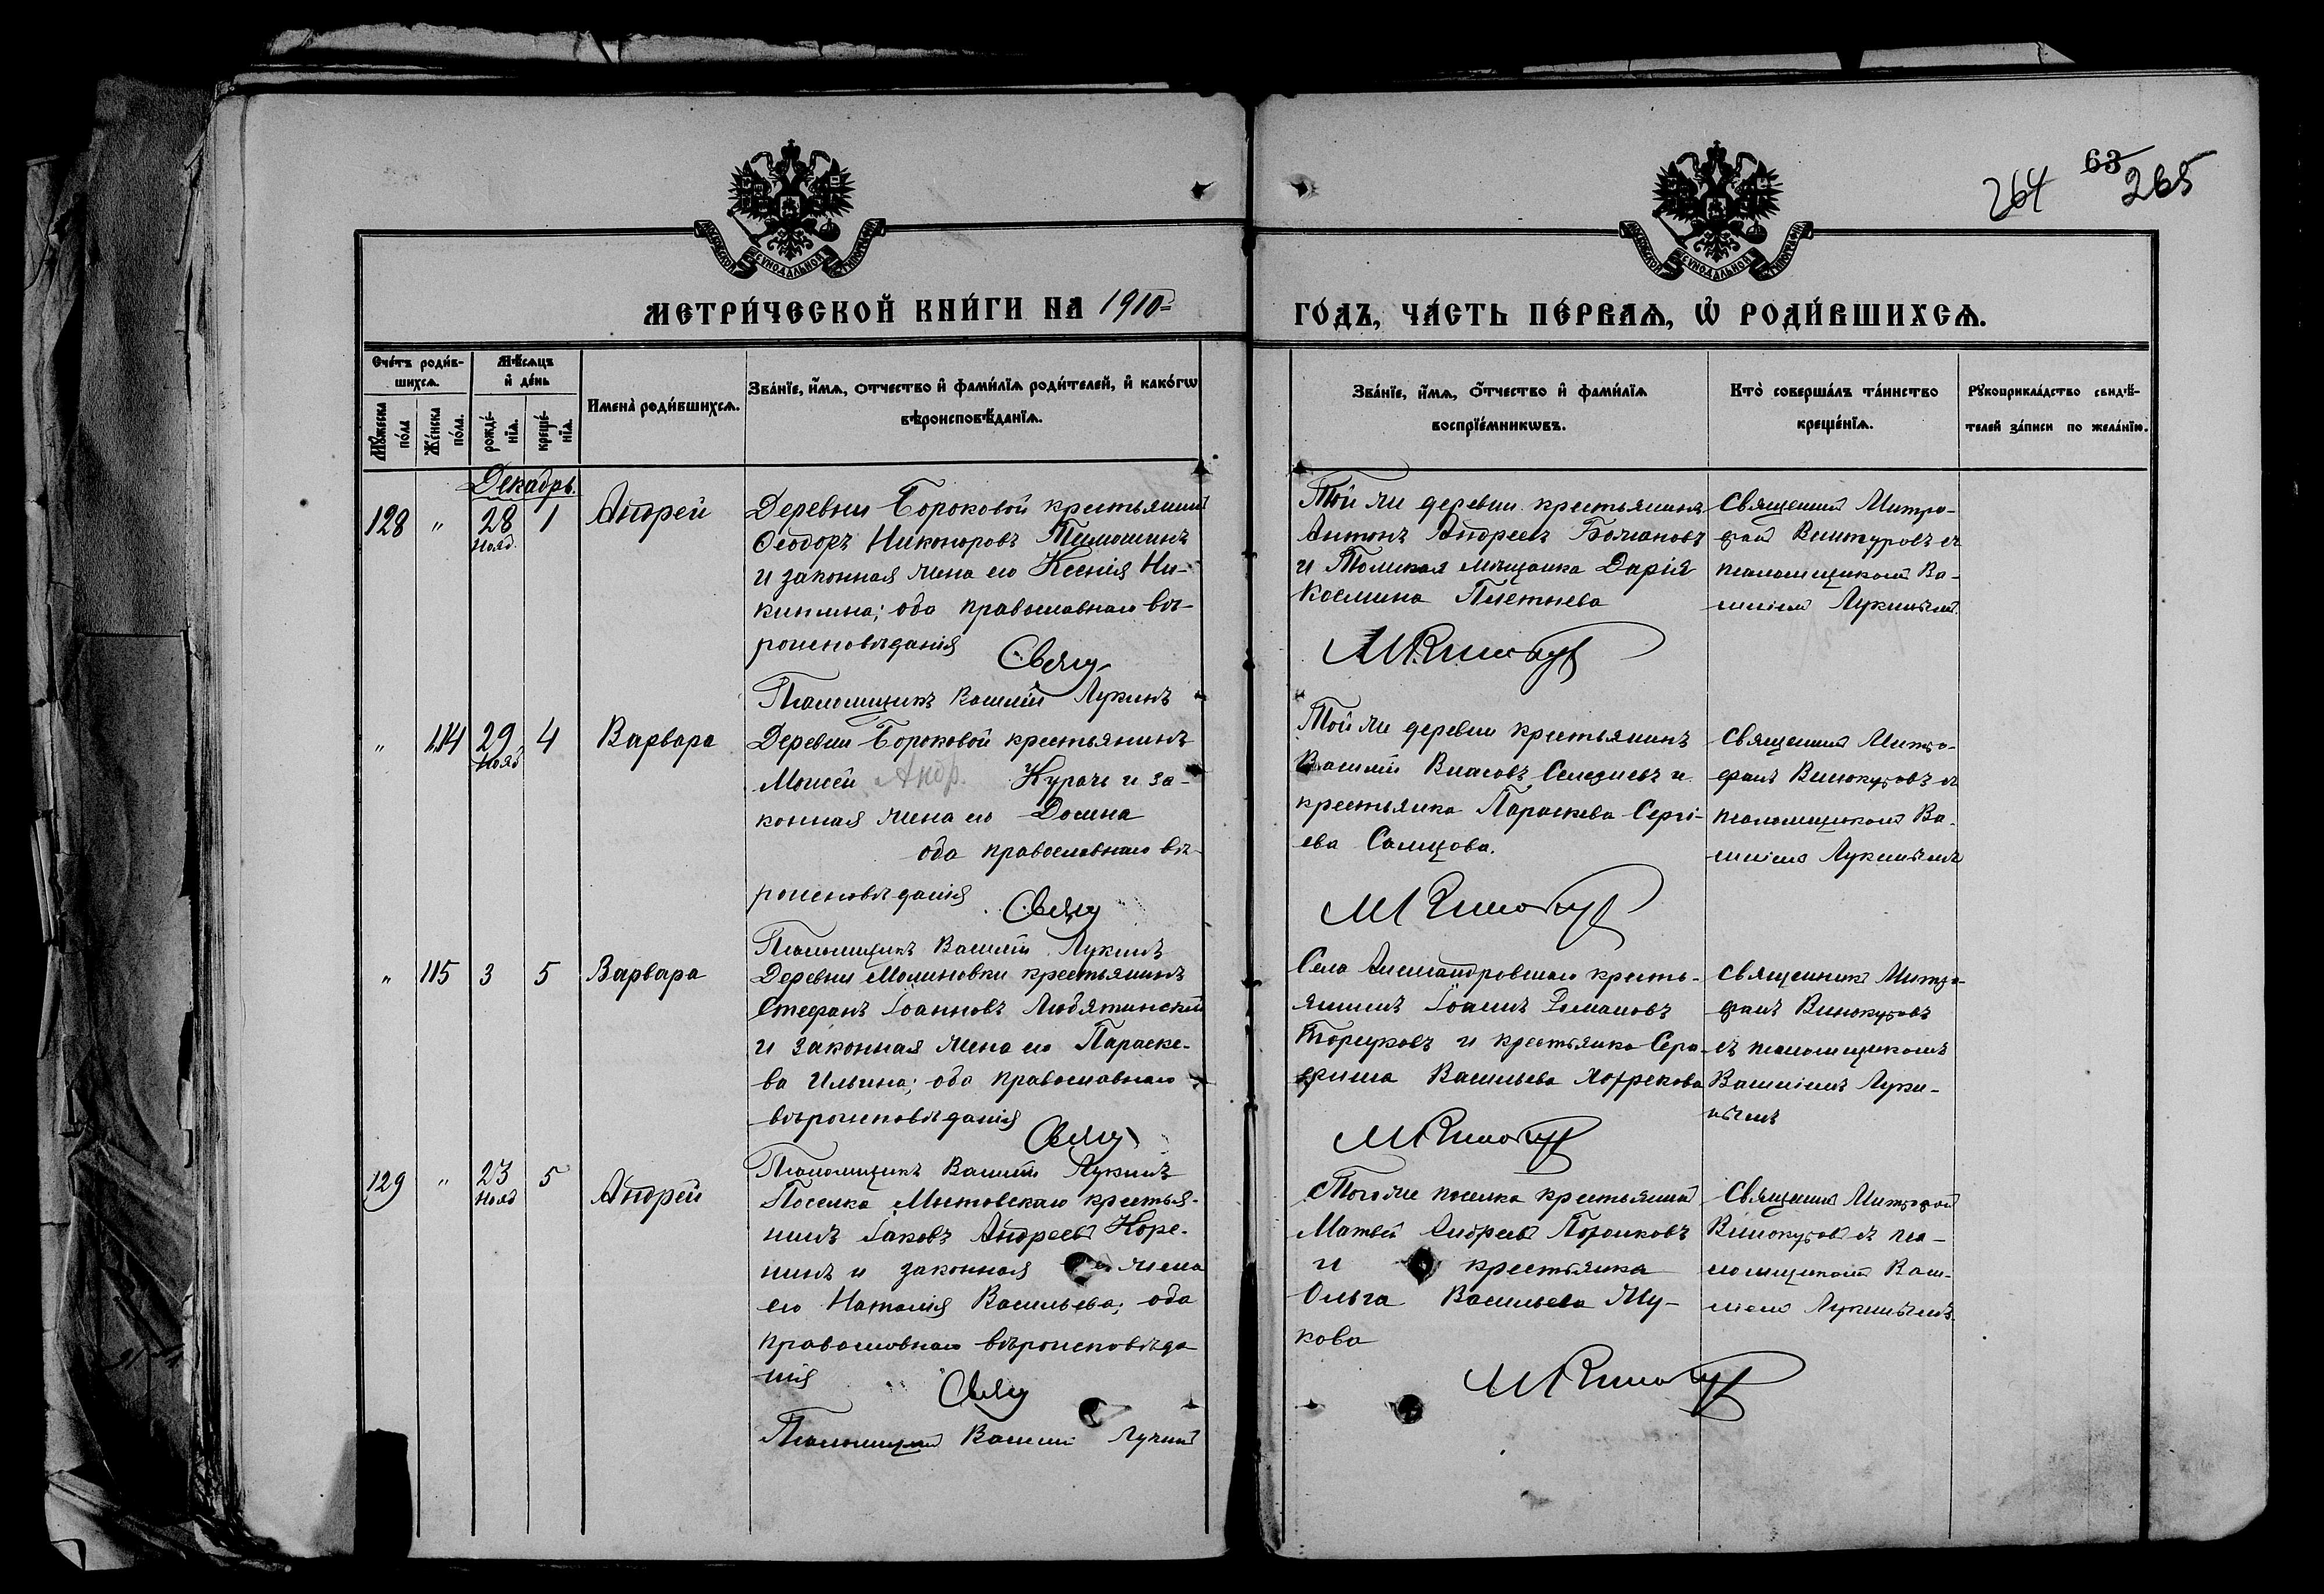 264 63 265
МЕТРИ́ЧЕСКОЙ КНИ́ГИ НА 1910 ГО́ДЪ, ЧА́СТЬ ПЕ́РВАѦ, Ѡ҆ РОДИ́ВШИХСѦ.
Сче́тъ роди́в-
шихсѧ.
Мꙋ́жеска по́ла
Же́нска по́ла.
Мѣ́сѧцъ
и҆ де́нь
рожде́-
нїѧ.
креще́-
нїѧ.
Имена̀ роди́вшихсѧ.
Зва́нїе, и҆́мѧ, ѻ҆́тчество и҆ фами́лїѧ роди́телей, и҆ како́гѡ
вѣроисповѣ́данїѧ.
Зва́нїе, и҆́мѧ, ѻ҆́тчество и҆ фами́лїѧ
воспрїе́мникѡвъ.
Кто̀ соверша́лъ та́инство
креще́нїѧ.
Рꙋкоприкла́дство свидѣ́-
телей за́писи по жела́нїю.
Декабрь.
128 " 28 Нояб. 1 Андрей
Деревни Бороковой крестьянинъ
Ѳеодоръ Никоноровъ Тимошинъ
и законная жена его Ксенія Ни-
китина; оба православнаго вѣ-
роисповѣданія
Свящ.
Псаломщикъ Василій Лукинъ
Той же деревни крестьянинъ
Антонъ Андреевъ
и Томская мѣщанка Дарія
Козмина Плетнева
Священникъ Митро-
фанъ Винокуровъ съ
псаломщикомъ Ва-
силіемъ Лукинымъ
М Винокур
" 114 29 Нояб 4 Варвара
Деревни Бороковой крестьянинъ
Моисей Андр. Курачъ и за-
конная жена его Домна
оба православнаго вѣ-
роисповѣданія
Свящ
Псаломщикъ Василій Лукинъ
Той же деревни крестьянинъ
Василій Власовъ Селезневъ и
крестьянка Параскева Сергі-
ева Самцова.
Священникъ Митро-
фанъ Винокуровъ съ
псаломщикомъ Ва-
силіемъ Лукинымъ
М Винокур
" 115 3 5 Варвара
Деревни Мошновки крестьянинъ
Стефанъ Іоанновъ Людятинскій
и законная жена его Параске-
ва Ильина; оба православнаго
вѣроисповѣданія
Свящ
Псаломщикъ Василій Лукинъ
Села Александровскаго кресть-
янинъ Іоаннъ Романовъ
и крестьянка Сера-
фима Васильева
Священникъ Митро-
фанъ Винокуровъ
съ псаломщикомъ
Василіемъ Луки-
нымъ
М Винокур
129 " 23 Нояб 5 Андрей
Поселка Мостовскаго крестья-
нинъ Іаковъ Андреевъ Коре-
нинъ и законная жена
его Наталія Васильева; оба
православнаго вѣроисповѣда-
нія
Свящ
Псаломщикъ Василій Лукинъ
Того же поселка крестьянинъ
Матвей Андреевъ
и крестьянка
Ольга Васильева Жу-
кова
Священникъ Митрофанъ
Винокуровъ съ пса-
ломщикомъ Васи-
ліемъ Лукинымъ
М Винокур